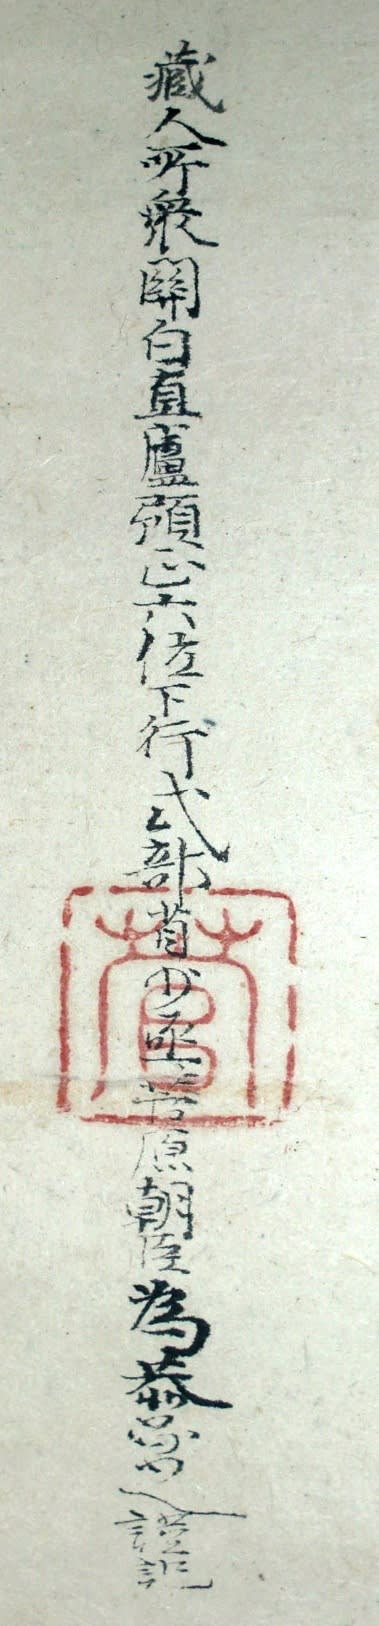 蔵人所衆關白直廬預正六位下行式部省少丞菅原朝臣為恭寫之謹記
菅